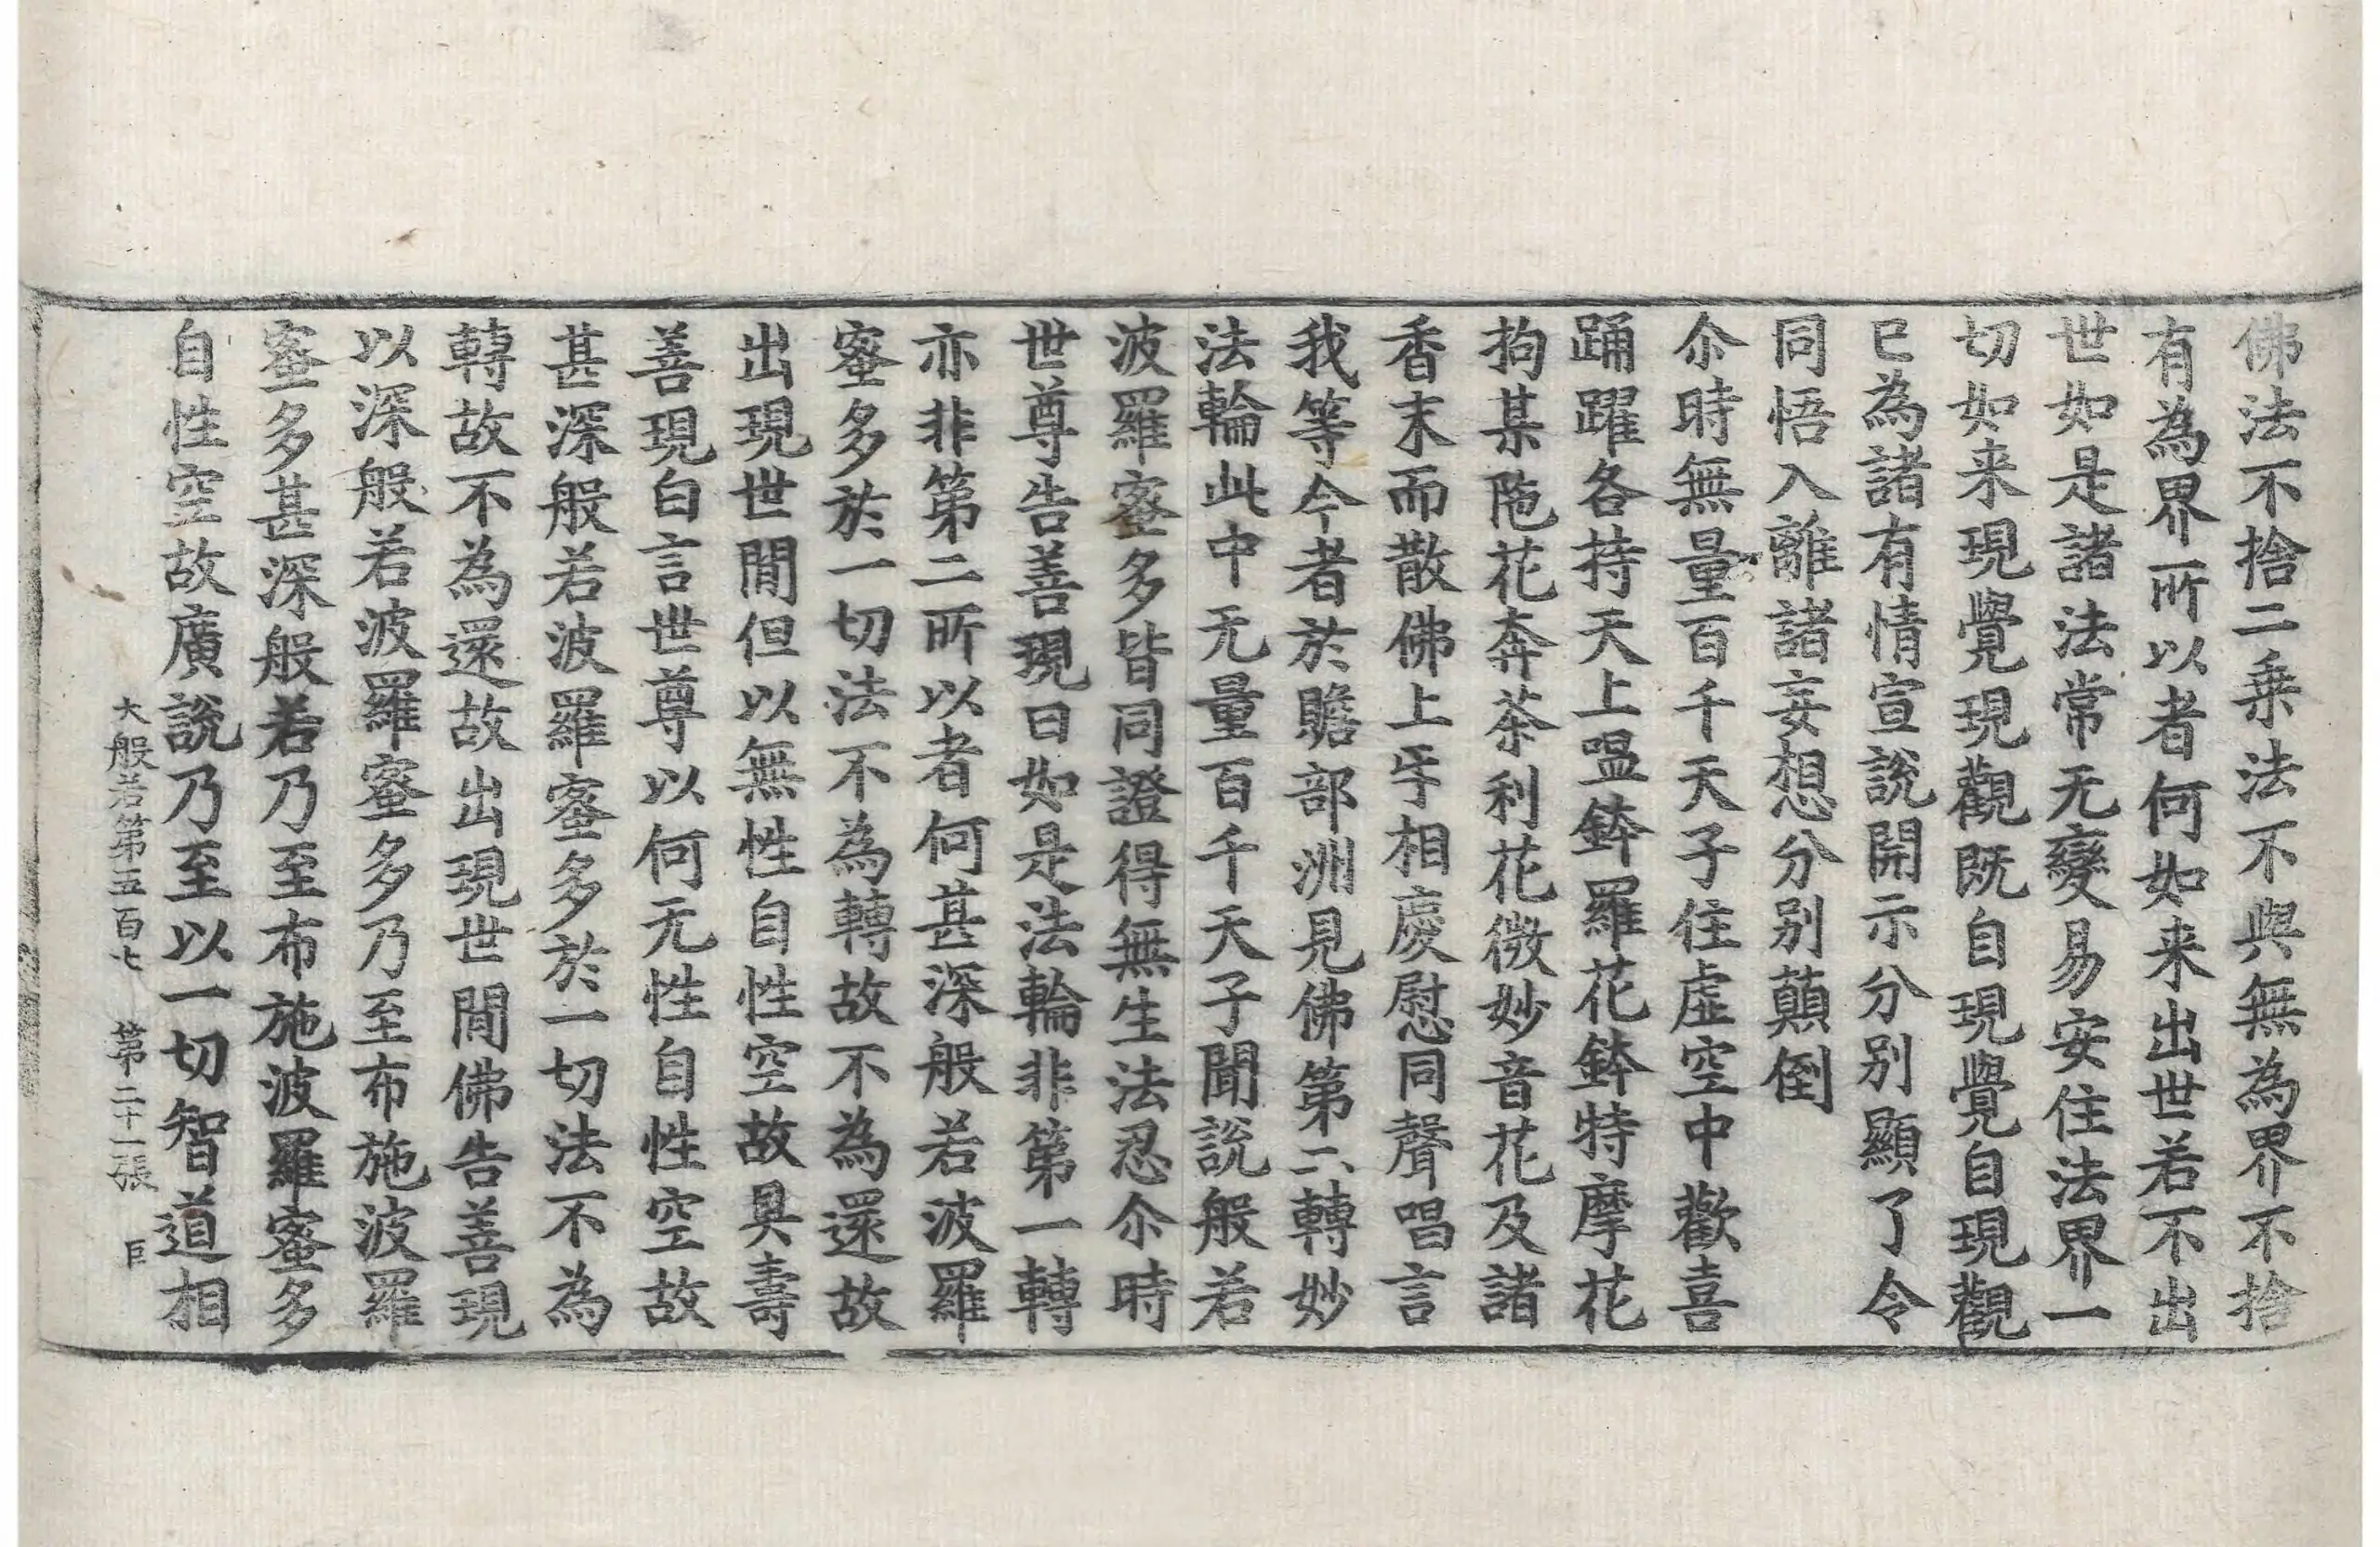 佛法不捨二乗法不與無為界不捨
有為界所以者何如来出世若不出
世如是諸法常无變易安住法界一
切如来現覺現觀既自現覺自現觀
已為諸有情宣說開示分别顯了令
同悟入離諸妄想分别顛倒
尒時無量百千天子住虛空中歡喜
踊躍各持天上嗢鉢羅花鉢特摩花
拘某陁花奔荼利花微妙音花及諸
香末而散佛上㸦相慶慰同聲唱言
我等今者於贍部洲見佛第二轉妙
法輪此中无量百千天子聞說般若
波羅蜜多皆同證得無生法忍尒時
世尊告善現曰如是法輪非第一轉
亦非第二所以者何甚深般若波羅
蜜多於一切法不為轉故不為還故
出現世閒但以無性自性空故具壽
善現白言世尊以何无性自性空故
甚深般若波羅蜜多於一切法不為
轉故不為還故出現世閒佛告善現
以深般若波羅蜜多乃至布施波羅
蜜多甚深般若乃至布施波羅蜜多
自性空故廣說乃至以一切智道相
大般若第五百七 第二十一張 巨